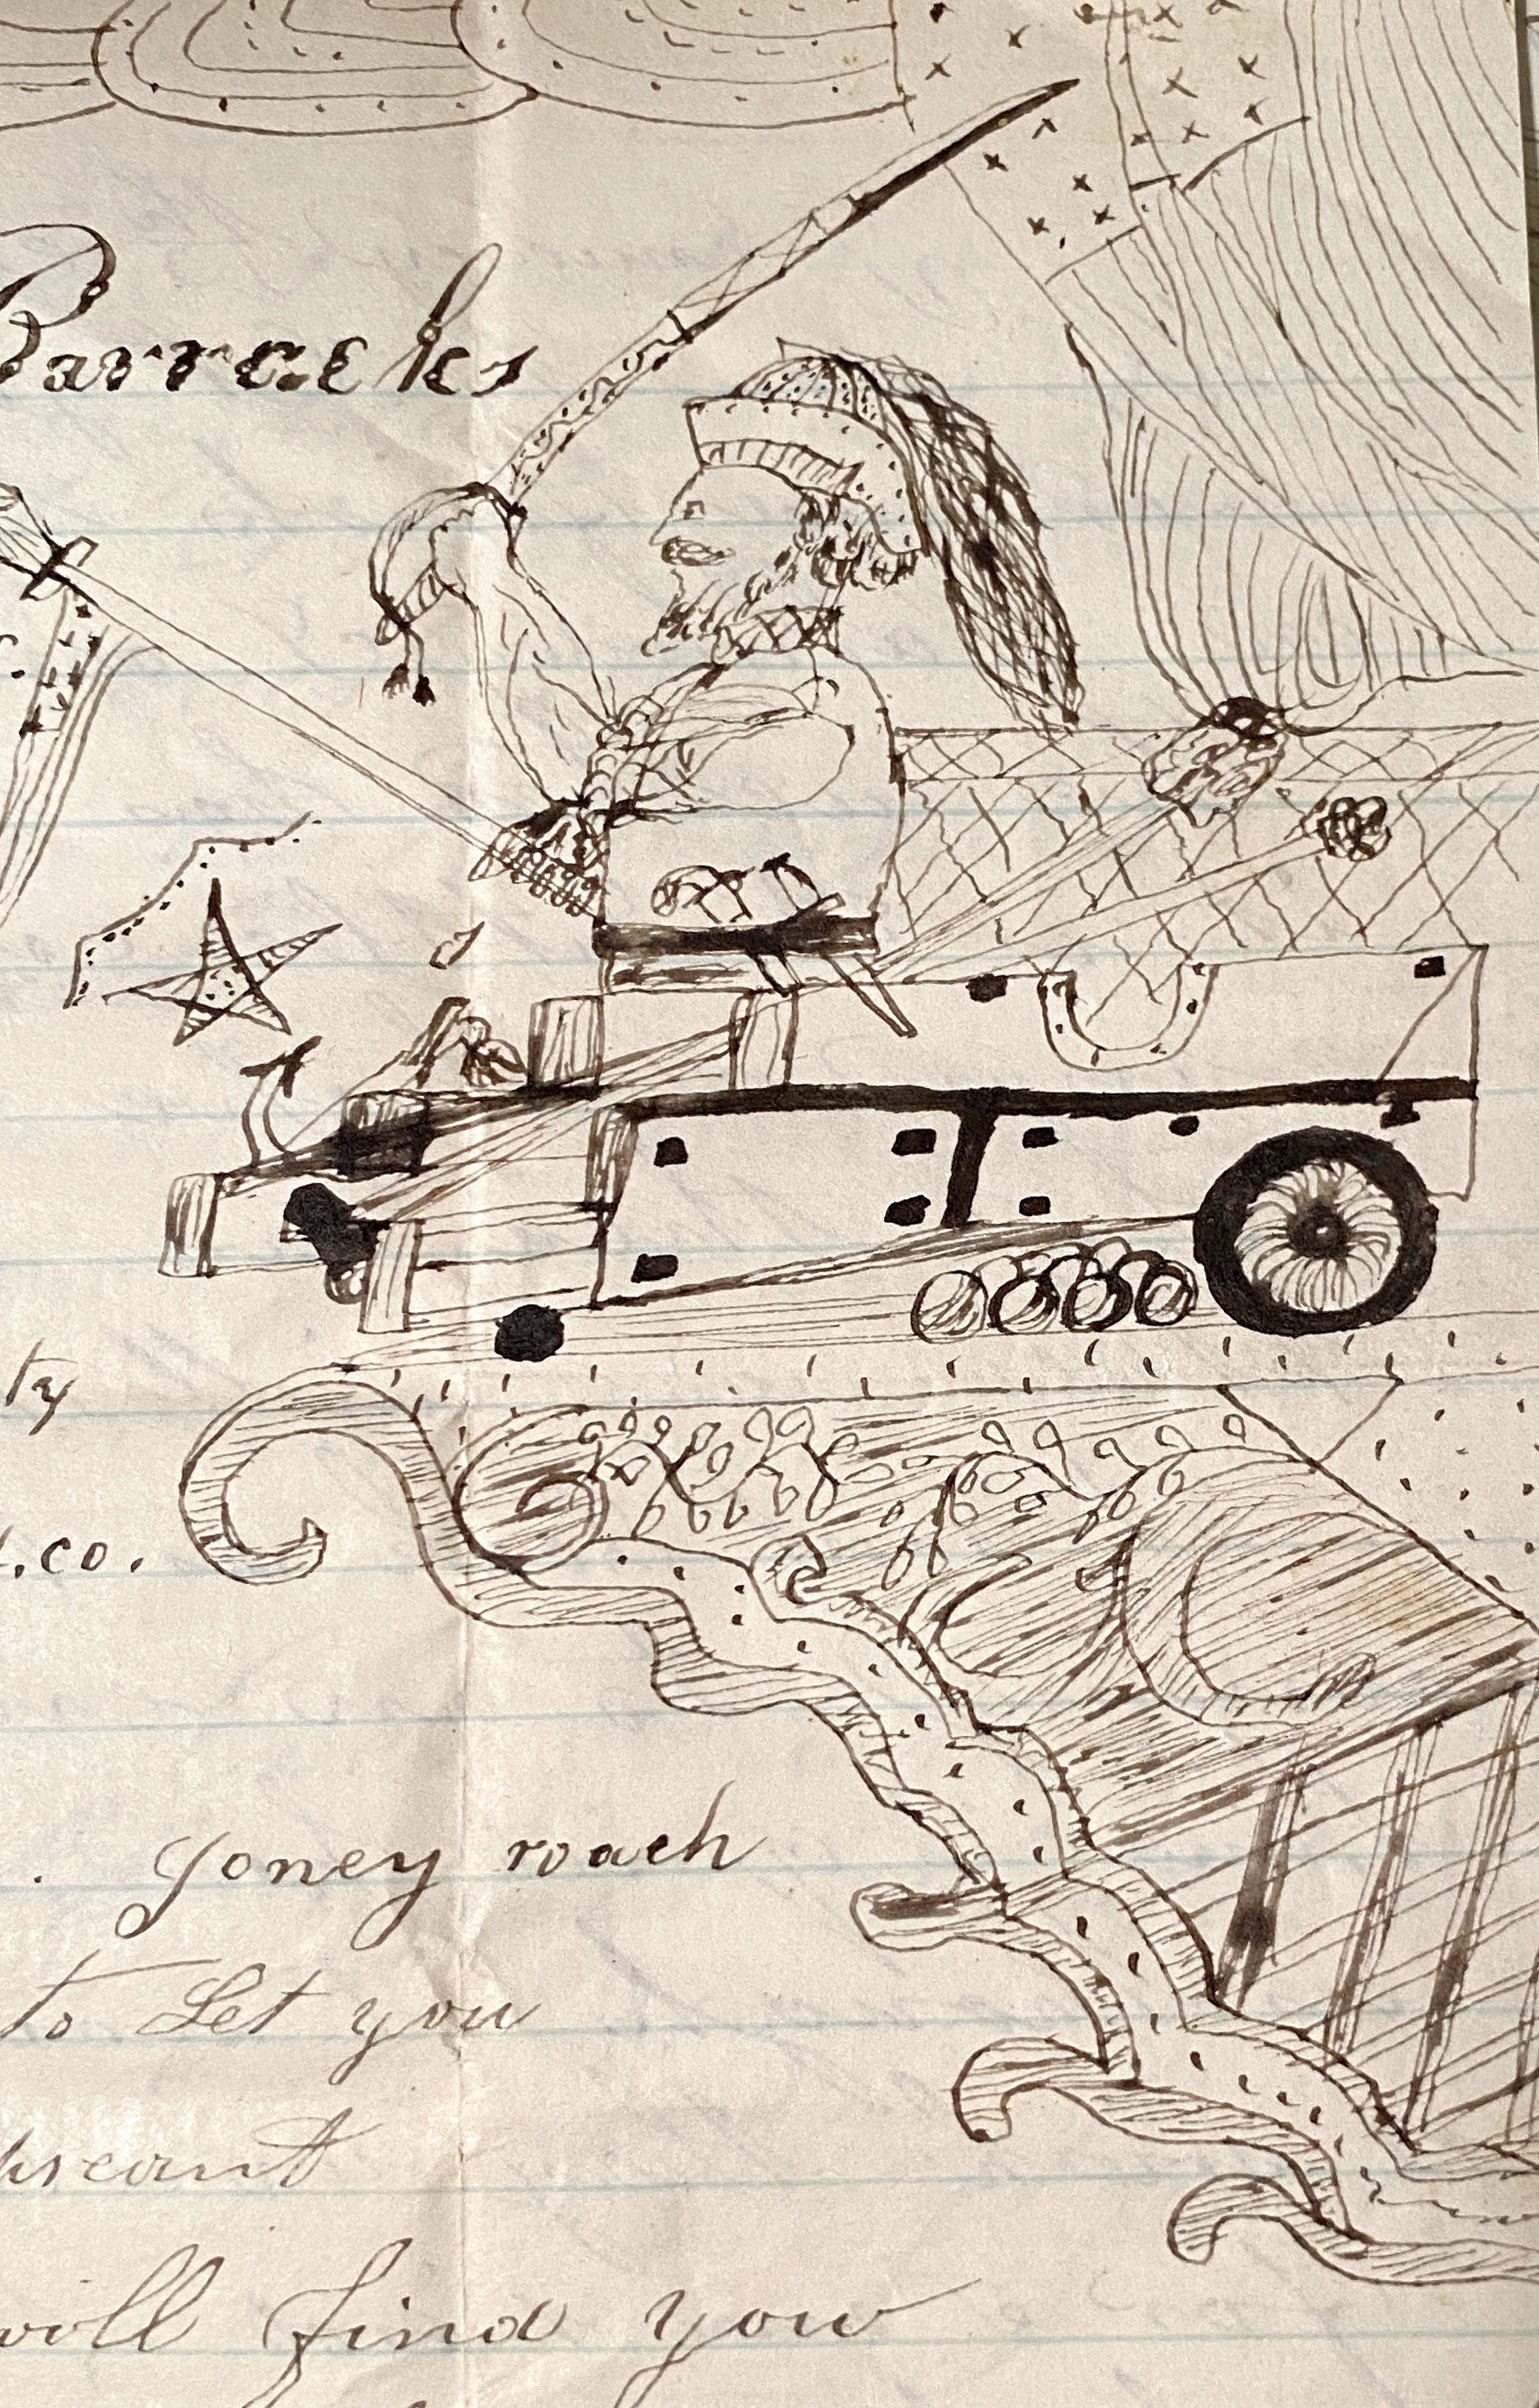 Barracks
ty
.co.
Joney roach
to Let you
will find you